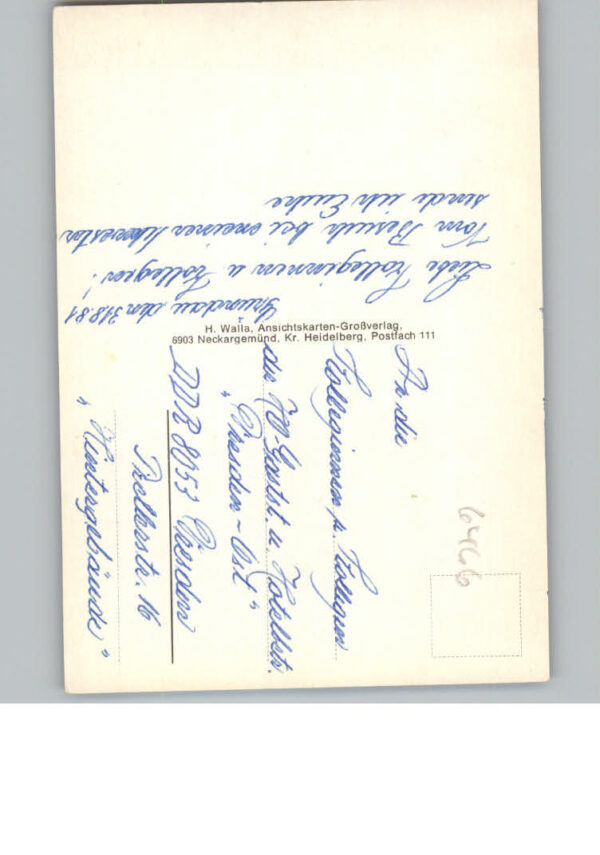 Gründau, den 31.8.81
Liebe Kolleginnen u Kollegen!
Vom Besuch bei meiner Schwester
sende ich Euche
H. Walla, Ansichtskarten-Großverlag,
6903 Neckargemünd, Kr. Heidelberg, Postfach 111
An die
Kolleginnen u. Kollegen
der HO-Gastst. u. Hotelbetr.
"Dresden-Ost"
DDR 8053 Dresden
Prellerstr. 16
"Hintergebäude"